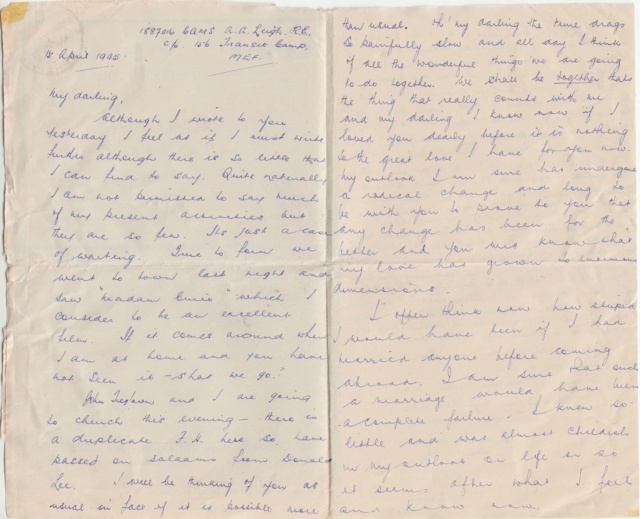 1887016 CQMS A.A. Leigh. R.E.
c/o. 156 Transit Camp,
MEF.
15 April 1945
My darling,
Although I wrote to you
yesterday I feel as if I must write
further although there is so little that
I can find to say. Quite naturally
I am not permitted to say much
of my present activities but
they are so few. It's just a case
of waiting. True to form we
went to town last night and
saw "Madam Curie" which I
consider to be an excellent
film. If it comes around when
I am at home and you have
not seen it - shall we go?
John and I are going
to church this evening - there is
a duplicate F.H. here so have
passed on salaams from Donald
Lee. I will be thinking of you as
usual in fact if it is possible more
than usual. Oh! my darling the time drags
so painfully slow and all day I think
of all the wonderful things we are going
to do together. We shall be together thats
the thing that really counts with me
and my darling I know now if I
loved you dearly before it is nothing
to the great love I have for you now.
My outlook I am sure has undergone
a radical change and long to
be with you to prove to you that
any change has been for the
better and you will know what
my love has grown to enormous
dimensions.
I often think now how stupid
I would have been if I had
married anyone before coming
abroad. I am sure that such
a marriage would have been
a complete failure. I knew so
little and was almost childish
in my outlook on life or so
it seems after what I feel
and know now.